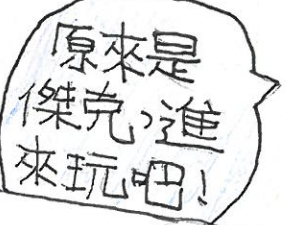 原來是
傑克，進
來玩吧！